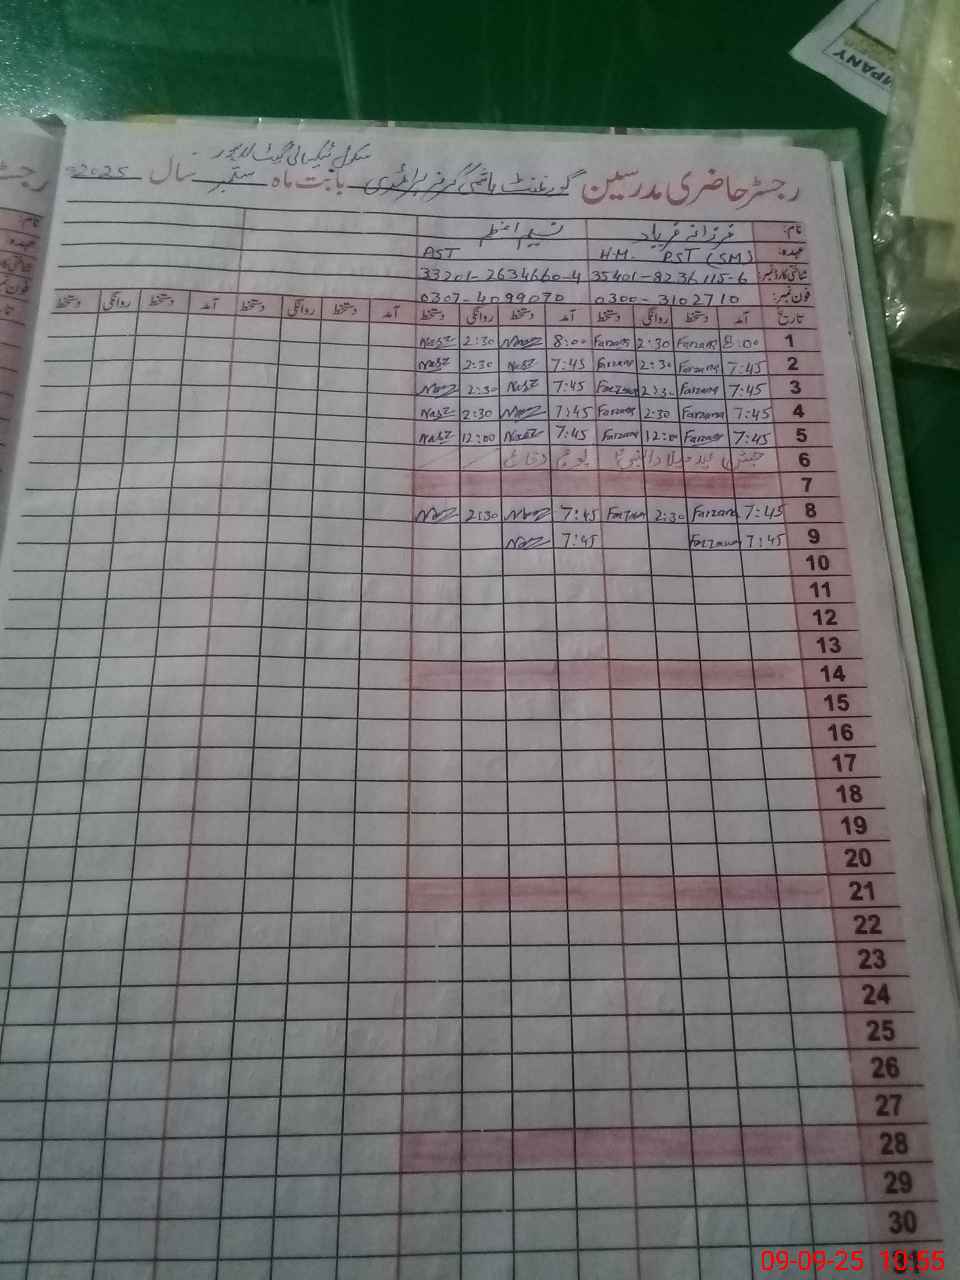 MPANY
سکول ٹیکسالی گیٹ لاہور
رجسٹر حاضری مدرسین گورنمنٹ ہاشمی گرلز پرائمری بابت ماہ ستمبر سال 2025ء
نام: فرزانہ فریاد نسیم اعظم
عہدہ: H.M. PST (SM) PST
شناختی کارڈ نمبر: 35401-8236115-6 33201-2634660-4
فون نمبر: 0300-3102710 0307-4099070
تاریخ آمد دستخط روانگی دستخط آمد دستخط روانگی دستخط آمد دستخط روانگی دستخط آمد دستخط روانگی دستخط
1 8:00 Farzana 2:30 Farzana 8:00 Nasz 2:30 Nasz
2 7:45 Farzana 2:30 Farzana 7:45 Nasz 2:30 Nasz
3 7:45 Farzana 2:30 Farzana 7:45 Nasz 2:30 Nasz
4 7:45 Farzana 2:30 Farzana 7:45 Nasz 2:30 Nasz
5 7:45 Farzana 12:00 Farzana 7:45 Nasz 12:00 Nasz
6 جشن عید میلاد النبی یوم دفاع
7
8 7:45 Farzana 2:30 Farzana 7:45 Nasz 2:30 Nasz
9 7:45 Farzana 7:45 Nasz
10
11
12
13
14
15
16
17
18
19
20
21
22
23
24
25
26
27
28
29
30
31
09-09-25 10:55